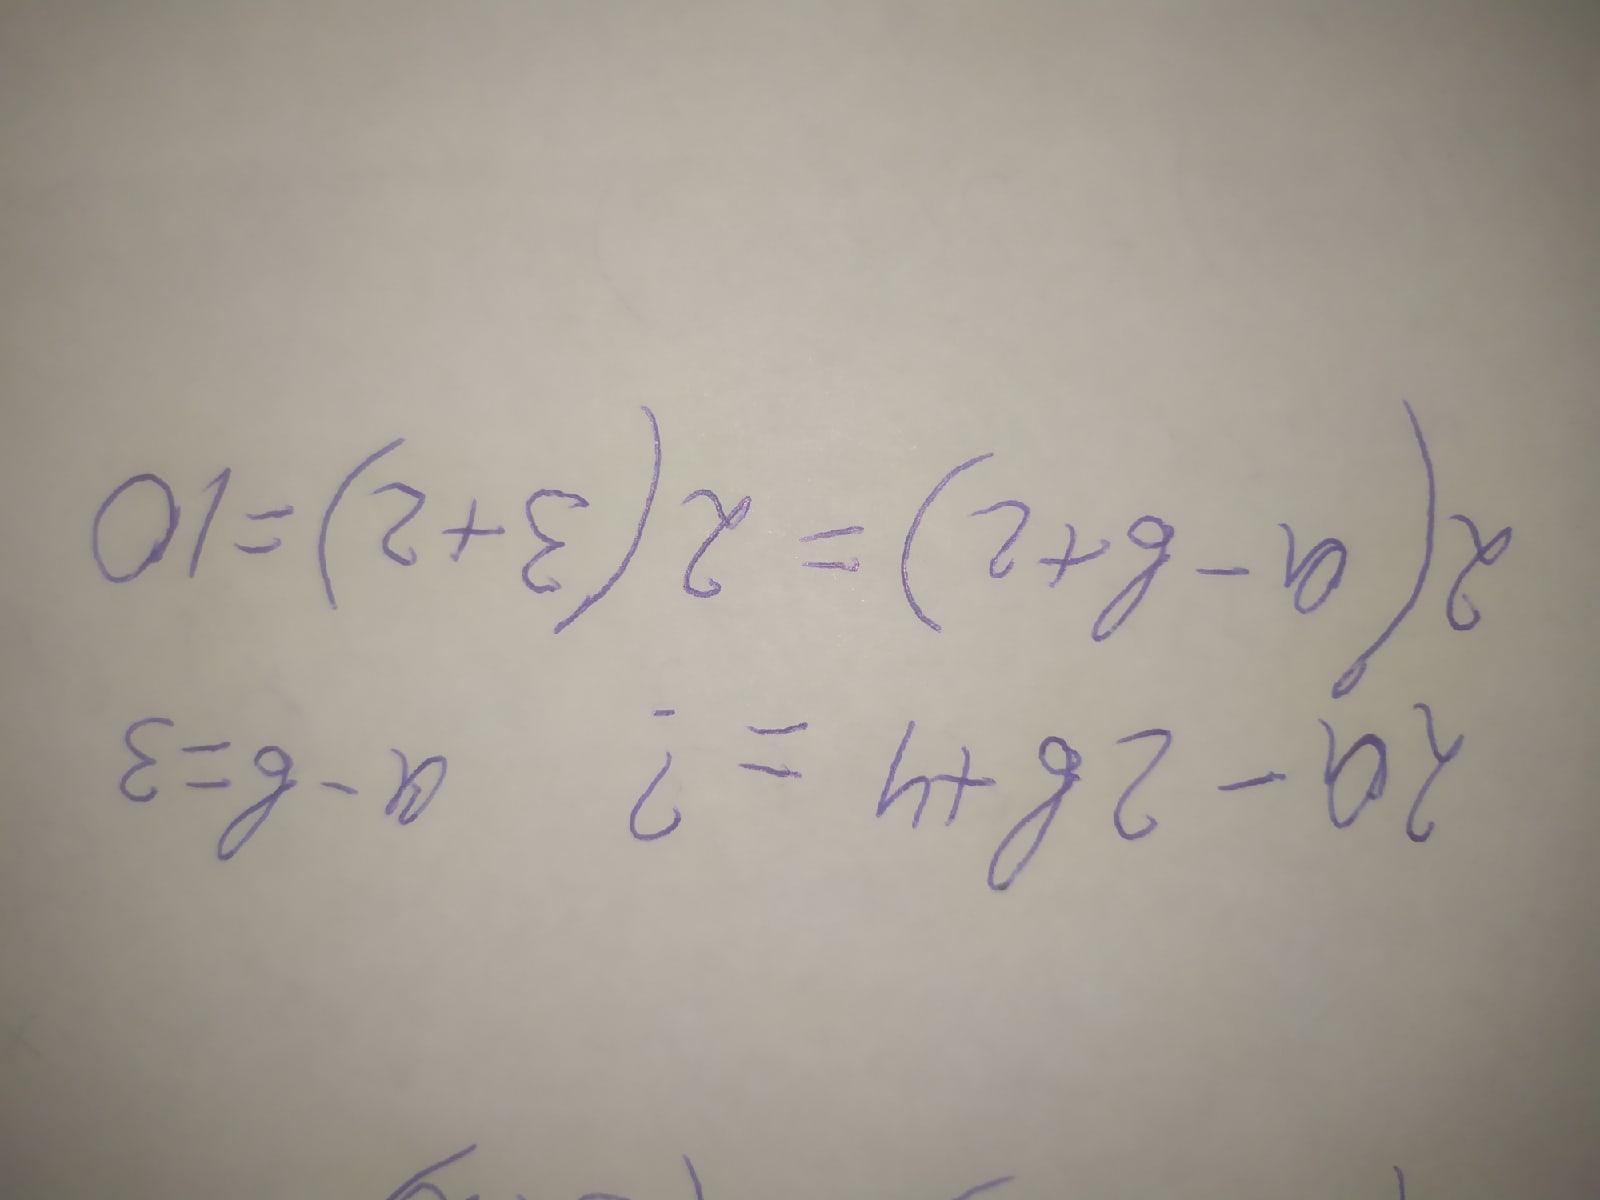 2a - 2в + 4 = ? a - в = 3
2(a - в + 2) = 2(3 + 2) = 10